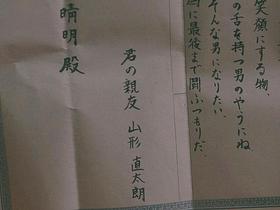 笑顔にする物、
の舌を持つ男のやうにね
そんな男になりたい。
に最後まで闘ふつもりだ。
君の親友 山形 直太朗
晴明殿